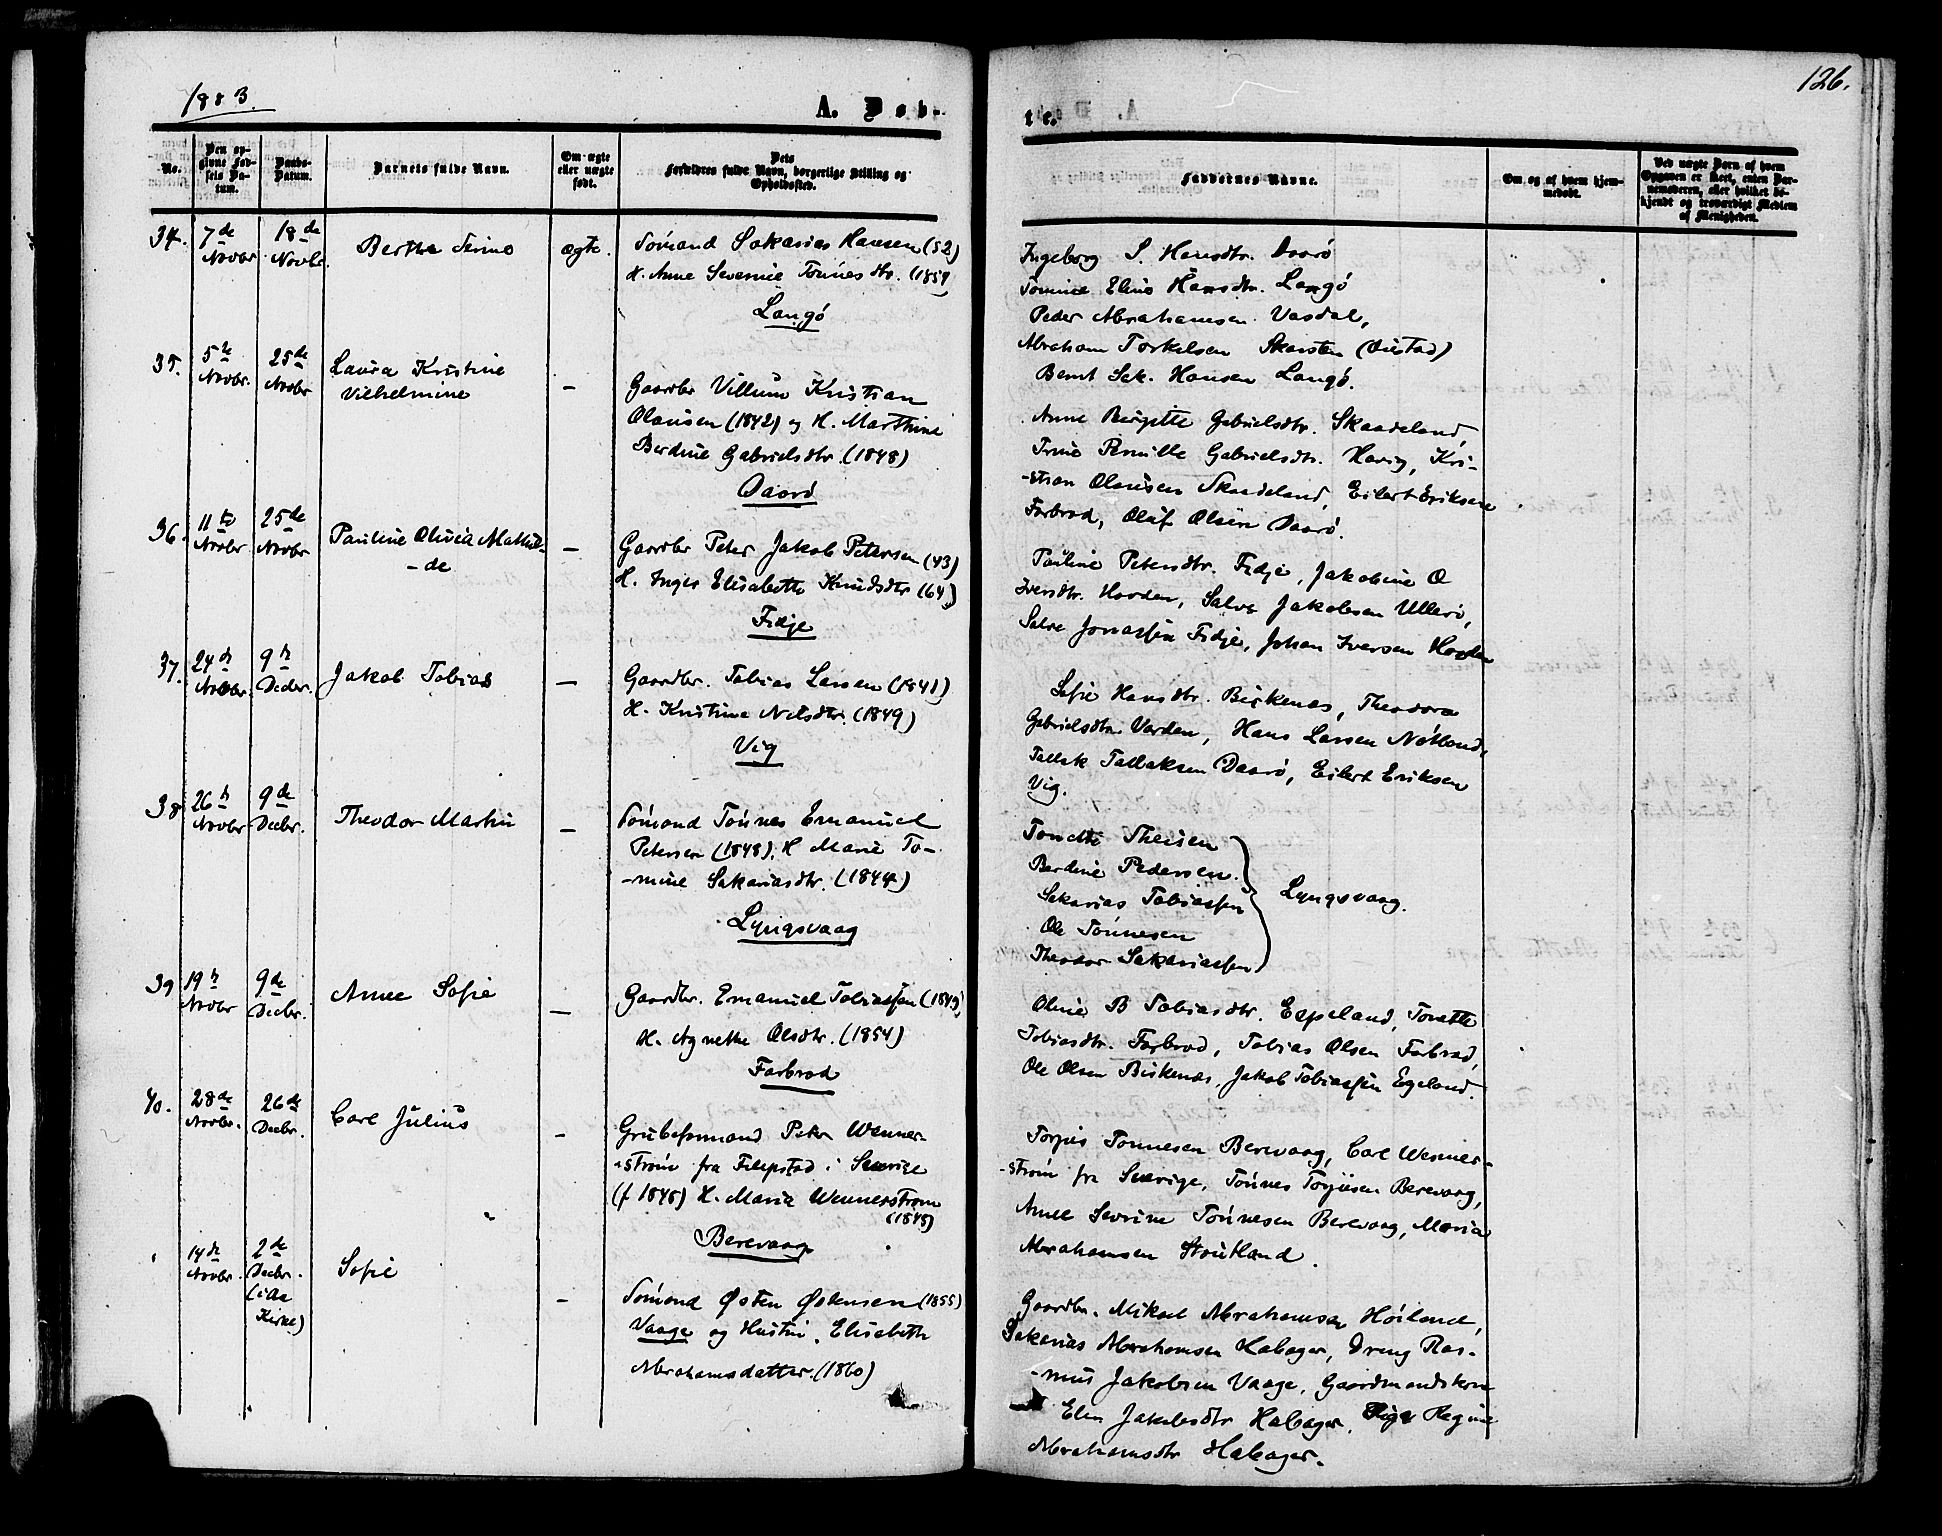 1883.
A. Døb-
No.
Den op-
givne Fød-
sels Da-
tum.
Daabs-
Datum.
Barnets fulde Navn.
Om ægte
eller uægte
født.
Dets
Forældres fulde Navn, borgerlige Stilling og
Opholdssted.
34.
7de
Novbr
18de
Novbr.
Berthe Serine
ægte.
Sømand Sakarias Hansen (52)
H. Anne Severine Tønnesdtr. (1857)
Langø
35.
5te
Novbr.
25de
Novbr
Laura Kristine
Vilhelmine
—
Gaardbr Villum Kristian
Olausen (1842) og H. Marthine
Berdine Gabrielsdtr. (1848)
Daarø
36.
11te
Novbr
25de
Novbr
Pauline Olivia Mathil-
-de
—
Gaardbr Peter Jakob Petersen (43)
H. Inger Elisabeth Knudsdtr (64)
Fidje
37.
24de
Novbr.
9de
Decbr.
Jakob Tobias
—
Gaardbr. Tobias Larsen (1841)
H. Kristine Nelsdtr. (1849)
Vig
38
26de
Novbr
9de
Decbr.
Theodor Martin
—
Sømand Tønnes Emanuel
Petersen (1848). H Marie To-
-mine Sakariasdtr. (1844)
Lyngsvaag
39
19de
Novbr
9de
Decbr.
Anne Sofie
—
Gaardbr. Emanuel Tobiassen (1849)
H. Agnethe Olsdtr. (1854)
Farbrod
40.
28de
Novbr.
26de
Decbr.
Carl Julius
—
Grubeformand Peter Wenner-
-strøm fra Filipstad i Sverige
(f 1848) H. Maria Wennerstrøm
(1848)
Berevaag
14de
Novbr.
2de
Decbr.
(i Aa
Kirke)
Sofie
—
Sømand Østen Østensen (1855)
Vaage og Hustru. Elisabeth
Abrahamsdatter. (1860)
126.
te.
Faddernes Navne.
Om og af hvem hjem-
medøbt.
Ved uægte Børn af hvem
Opgaven er skeet, enten Bar-
nemoderen, eller hvilket be-
kjendt og troværdigt Medlem
af Menigheden.
Ingeborg S. Hansdtr. Daarø
Tomine Eline Hansdtr. Langø
Peder Abrahamsen Vasdal,
Abraham Torkelsen Skarsten (Østad)
Bernt Sak. Hansen Langø.
Anne Birgitte Gabrielsdtr. Skaadeland,
Trine Pernille Gabrielsdtr. Havig, Kri-
-stian Olausen Skaadeland, Eilert Eriksen
Farbrod, Olaf Olsen Daarø.
Pauline Petersdtr. Fidje, Jakobine O
Iversdtr. Hovden, Salve Jakobsen Ullerø,
Salve Jonassen Fidje, Johan Iversen Hovden
Sofie Hansdtr. Birkenæs, Theodora
Gabrielsdtr. Varden, Hans Larsen Nøtland,
Tallak Tallaksen Daarø, Eilert Eriksen
Vig.
Tonette Theisen
Berdine Pedersen.
Sakarias Tobiassen
Ole Tønnesen
Theodor Sakariassen
Lyngsvaag.
Oline B Tobiasdtr. Egeland, Tonette
Tobiasdtr. Farbrod, Tobias Olsen Farbrod,
Ole Olsen Birkenæs, Jakob Tobiassen Egeland.
Torjus Tønnesen Berevaag, Carl Wenner-
-strøm fr Sverige, Tønnes Torjusen Berevaag,
Anne Sevrine Tønnesen Berevaag, Maria
Abrahamsen Stoutland.
Gaardbr. Mikael Abrahamsen Høiland,
Sakarias Abrahamsen Habager, Dreng Ras-
-mus Jakobsen Vaage, Gaardmandskone
Elen Jakobsdtr Habager. Pige Regine
Abrahamsdtr Habager.